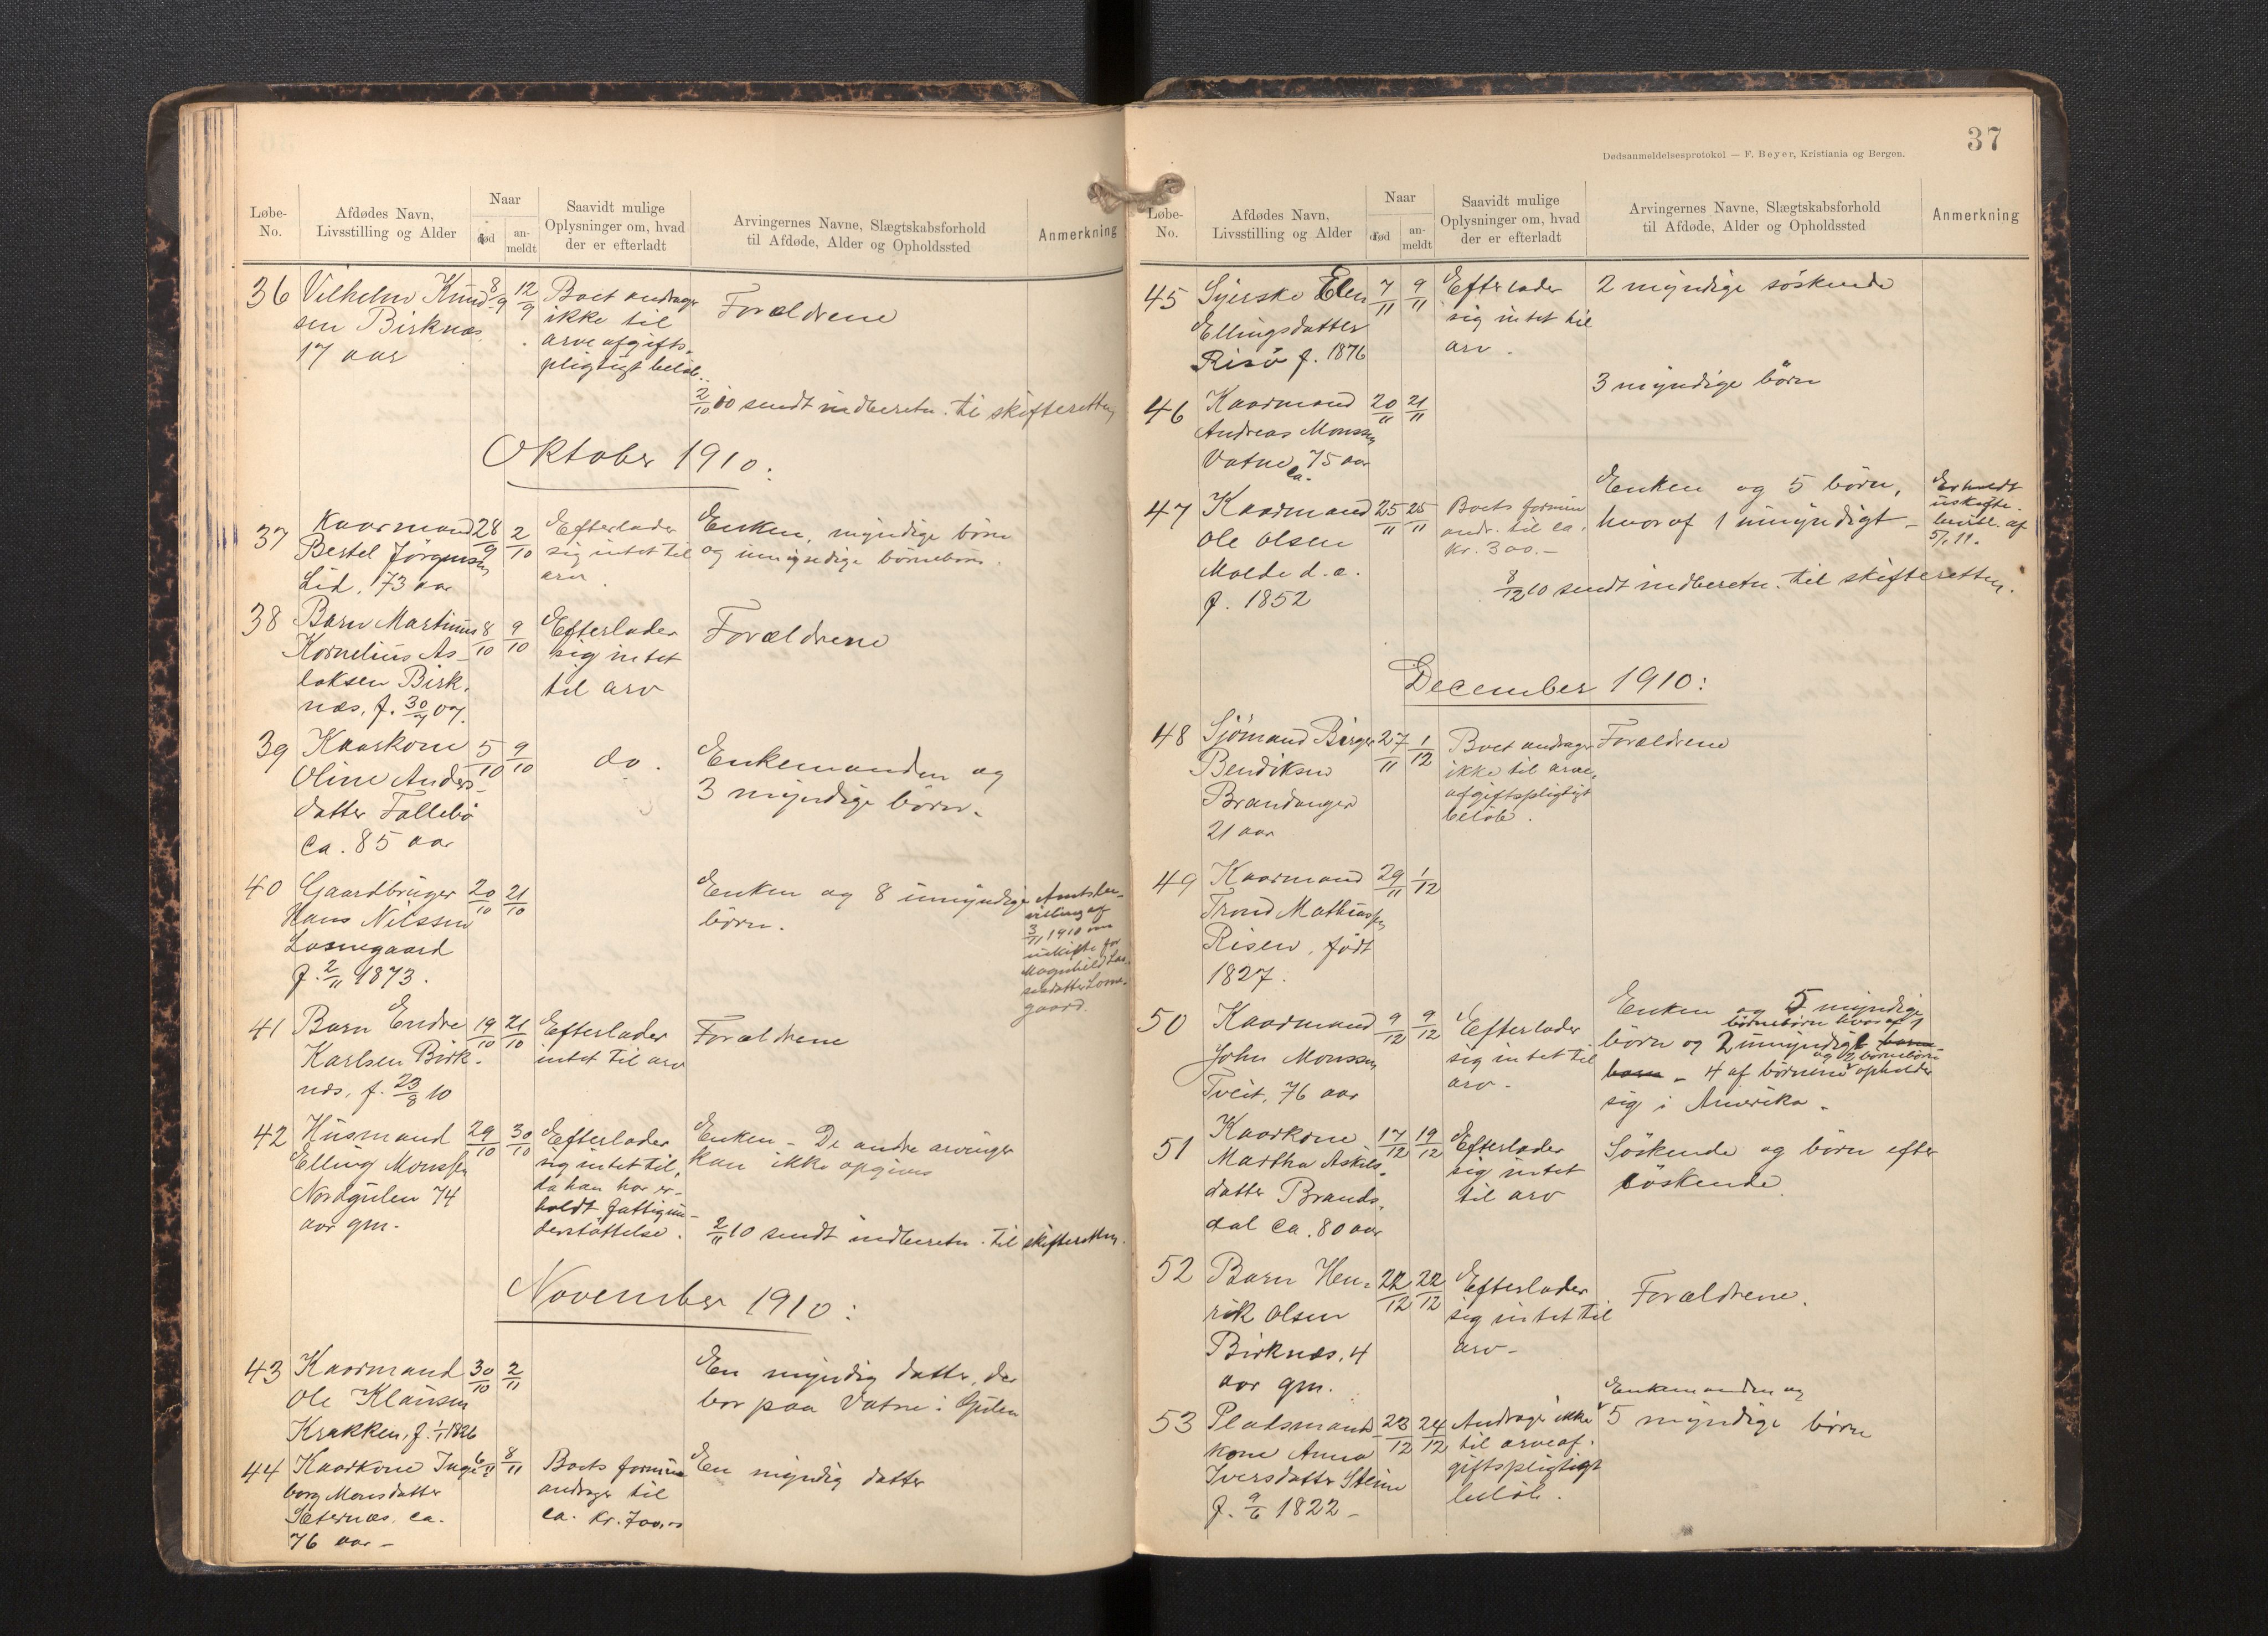 Løbe-
No.
Afdødes Navn,
Livsstilling og Alder
Naar
død
an-
meldt
Saavidt mulige
Oplysninger om, hvad
der er efterladt
Arvingernes Navne, Slægtskabsforhold
til Afdøde, Alder og Opholdssted
Anmerkning
36 Vilhelm Knud-
sen Birknæs
17 aar
8/9
12/9
Boet andrager
ikke til
arveafgifts-
pligtigt beløb.
Forældrene
2/10 10 sendt indberetn. til skifteretten
Oktober 1910:
37 Kaarmand
Bertel Jörgensen
Lid, 73 aar
28/9
2/10
Efterlader
sig intet til
arv.
Enken, myndige börn
og umyndige börnebörn.
38 Barn Martinus
Kornelius As-
laksen Birk-
næs, f. 30/7 07.
8/10
9/10
Efterlader
sig intet
til arv
Forældrene
39 Kaarkone
Oline Anders-
datter Fallebö
ca. 85 aar
5/10
9/10
do.
Enkemanden og
3 myndige börn.
40 Gaardbruger
Hans Nilssen
Losnegaard
f. 2/11 1873.
20/10
21/10
Enken og 8 umyndige
börn.
Amtsbe-
villing af
3/11 1910 om
uskifte for
Magnhild Las-
sesdatter Losne-
gaard.
41 Barn Endre
Karlsen Birk-
næs, f. 23/8 10
19/10
21/10
Efterlader
intet til arv
Forældrene
42 Husmand
Elling Monssen
Nordgulen 74
aar gm.
29/10
30/10
Efterlader
sig intet til,
da han har er-
holdt fattigun-
derstöttelse.
Enken - De andre arvinger
kan ikke opgives
2/11 10 sendt indberetn. til skifteretten.
November 1910:
43 Kaarmand
Ole Klausen
Krakken, f. 1/1 1826
30/10
2/11
En myndig datter, der
bor paa Vatne i Gulen
44 Kaarkone Inge-
borg Monsdatter
Sæternæs, ca.
76 aar -
6/11
8/11
Boets formue
andrager til
ca. kr. 700,-
En myndig datter
37
Dødsanmeldelsesprotokol — F. Beyer, Kristiania og Bergen.
Løbe-
No.
Afdødes Navn,
Livsstilling og Alder
Naar
død
an-
meldt
Saavidt mulige
Oplysninger om, hvad
der er efterladt
Arvingernes Navne, Slægtskabsforhold
til Afdøde, Alder og Opholdssted
Anmerkning
45 Syerske Elen
Ellingsdatter
Risö f. 1876
7/11
9/11
Efterlader
sig intet til
arv.
2 myndige söskende
46 Kaarmand
Andreas Monssen
Vatne, 75 aar
ca.
20/11
21/11
3 myndige börn
47 Kaarmand
Ole Olsen
Molde d.a.
f. 1852
25/11
25/11
Boets formue
andr. til ca.
kr. 300.-
Enken og 5 börn,
hvoraf 1 umyndigt -
Erholdt
uskifte-
bevill. af
5/1 11.
8/12 10 sendt indberetn. til skifteretten.
December 1910:
48 Sjömand Birger
Bendiksen
Brandanger
21 aar
27/11
1/12
Boet andrager
ikke til arve-
afgiftspligtigt
beløb.
Forældrene
49 Kaarmand
Trond Mathiassen
Risen, födt
1827.
29/11
1/12
50 Kaarmand
John Monssen
Tveit, 76 aar
9/12
9/12
Efterlader
sig intet til
arv -
Enken og 5 myndige
börnebörn hvoraf 1
börn og 2 umyndigt barn
og 2 börnebörn
barn - 4 af börnene opholder
sig i Amerika.
51 Kaarkone
Martha Askils-
datter Brands-
dal ca. 80 aar
17/12
19/12
Efterlader
sig intet
til arv
Söskende og börn efter
söskende.
52 Barn Hen-
rik Olsen
Birknæs, 4
aar gm.
22/12
22/12
Efterlader
sig intet til
arv -
Forældrene.
53 Pladsmands
kone Anna
Iversdatter Steine
f. 9/6 1822 -
23/12
24/12
Andrager ikke
til arveaf-
giftspligtigt
beløb.
Enkemanden og
5 myndige börn